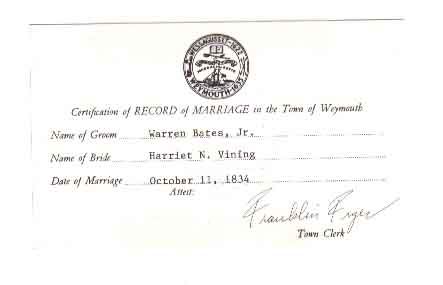 WESSAGUSSET-1622
WEYMOUTH-1635
Certification of RECORD of MARRIAGE in the Town of Weymouth
Name of Groom Warren Bates, Jr.
Name of Bride Harriet N. Vining
Date of Marriage October 11, 1834
Attest:
Franklin Fryer
Town Clerk